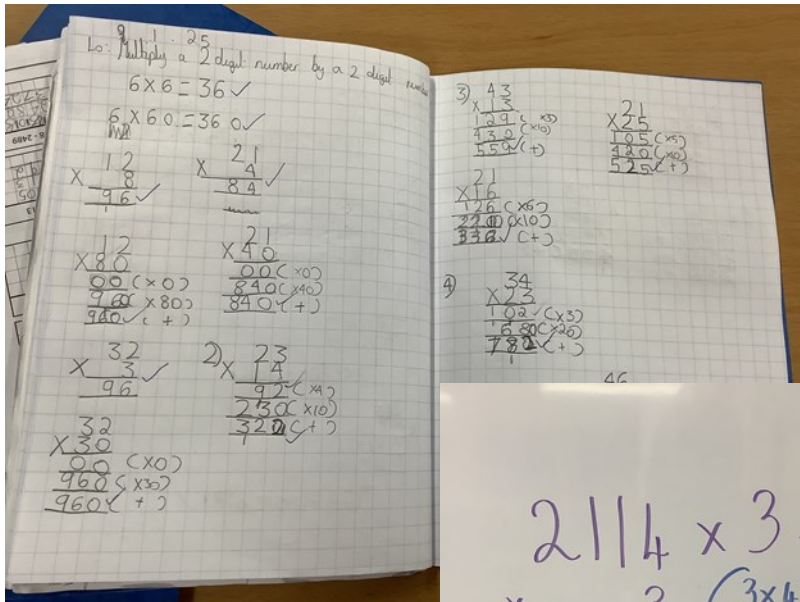 9.1.25
Lo: Multiply a 2 digit number by a 2 digit number
6×6=36✓
6×60=360✓
12
× 8
96✓
1
21
× 4
84✓
12
×80
00(×0)
960(×80)
960✓(+)
21
×40
00(×0)
840(×40)
840✓(+)
32
× 3✓
96
2) 23
×14
92✓(×4)
230(×10)
322(+)
1 ✓
32
×30
00 (×0)
960(×30)
960✓(+)
3) 43
×13
129(×3)
432(×10)
559✓(+)
21
×25
105(×5)
420(×20)
525✓(+)
21
×16
126(×6)
210(×10)
336✓(+)
4) 34
×23
102✓(×3)
680(×20)
782✓(+)
1
46
2114 × 3
(3×4